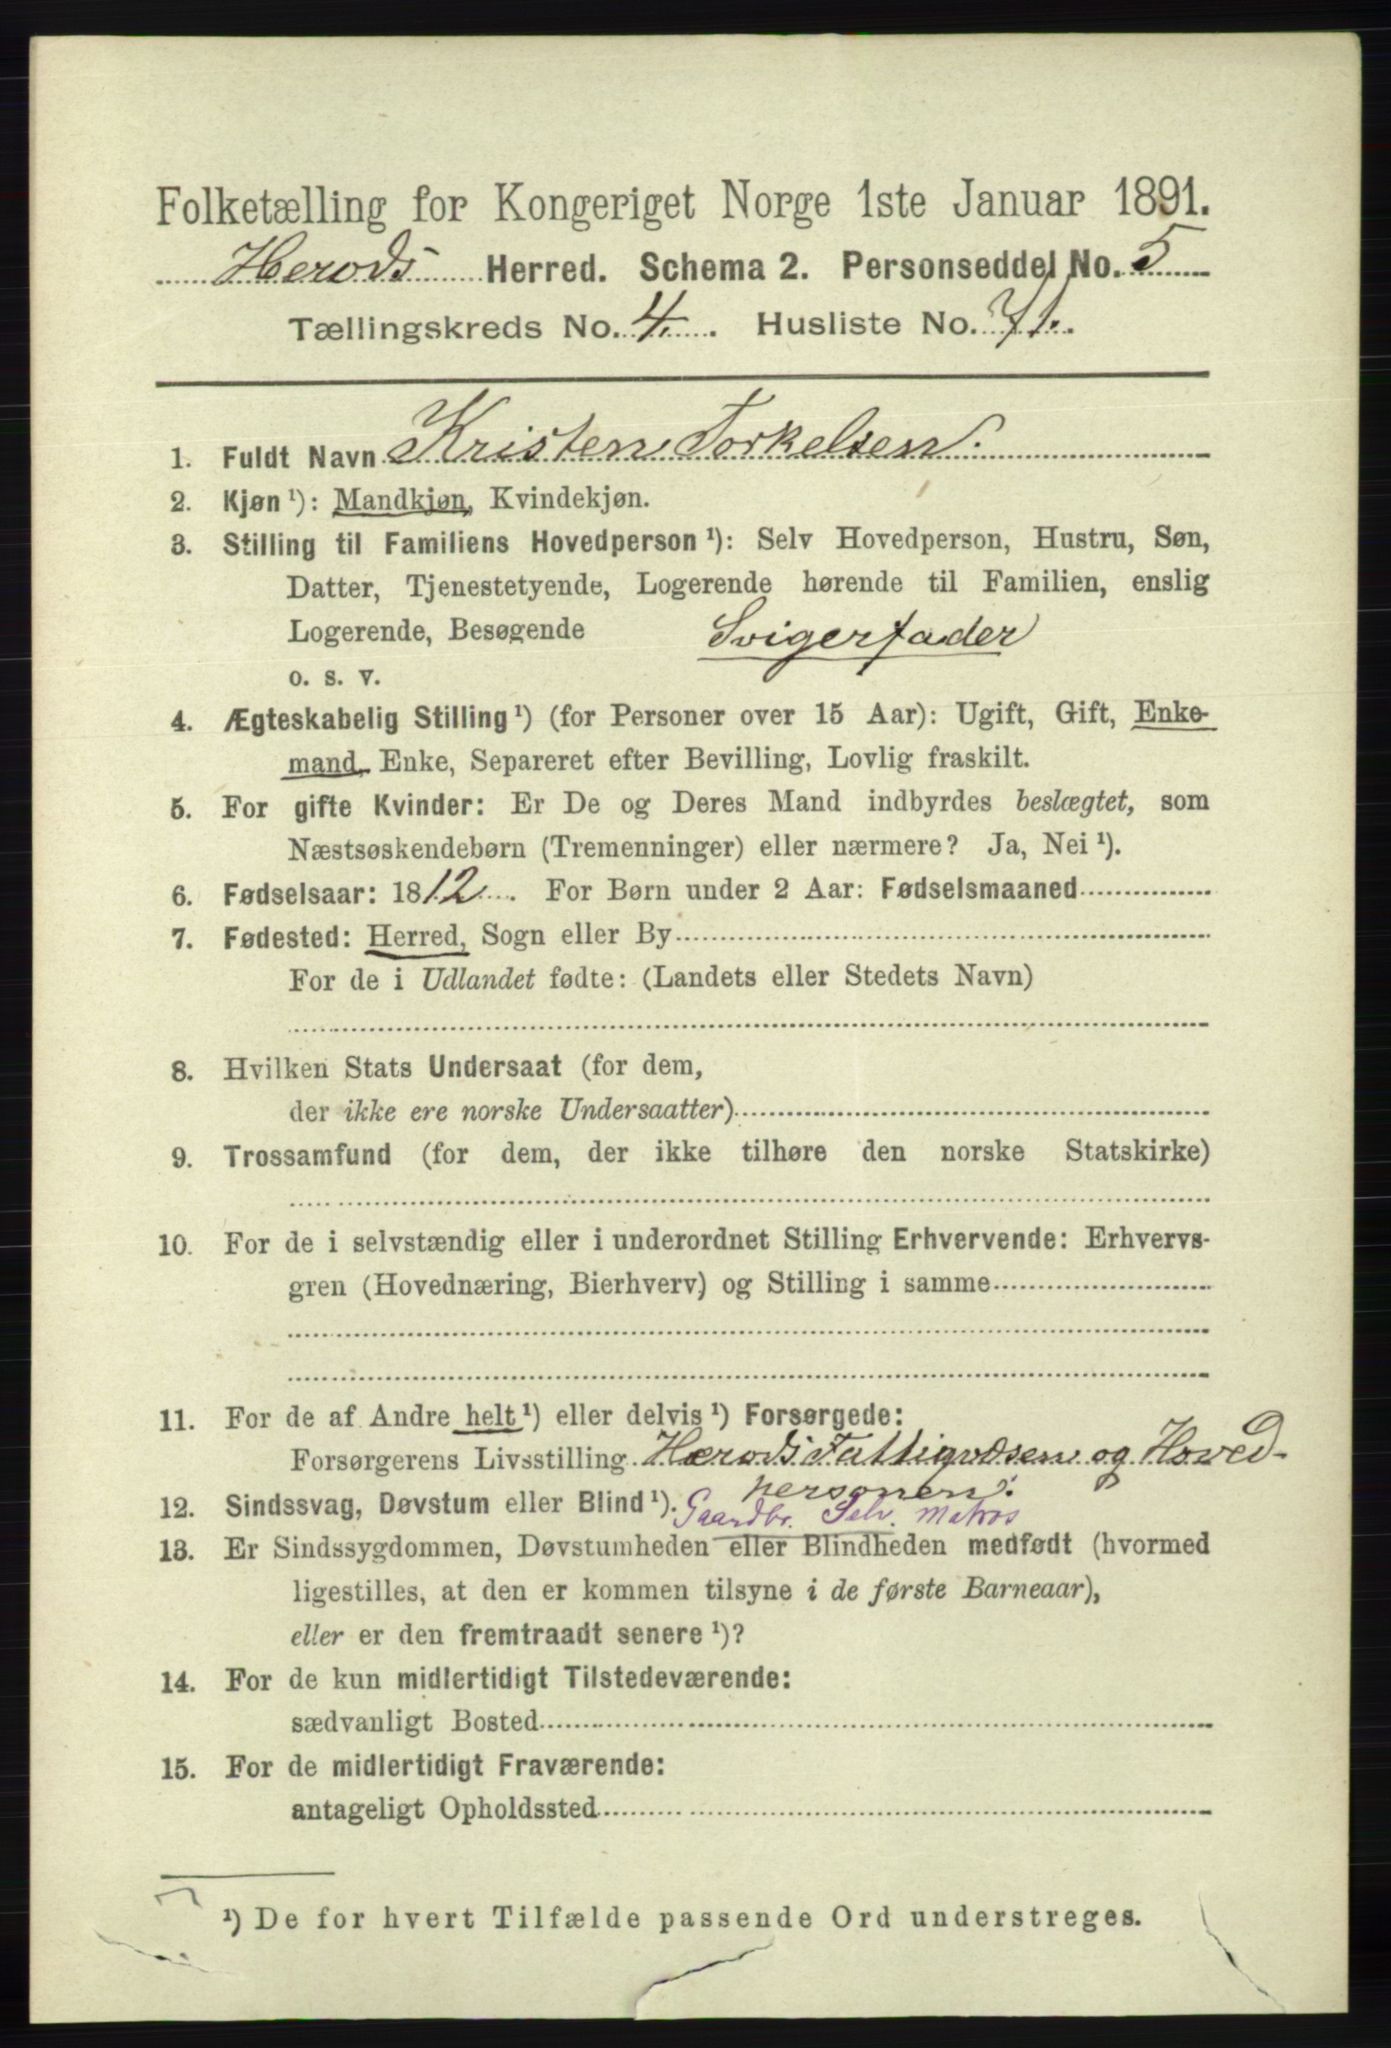 Folketælling for Kongeriget Norge 1ste Januar 1891.
Herods Herred. Schema 2. Personseddel No. 5
Tællingskreds No. 4. Husliste No. 71.
1. Fuldt Navn Kristen Torkelsen.
2. Kjøn ¹): Mandkjøn, Kvindekjøn.
3. Stilling til Familiens Hovedperson ¹): Selv Hovedperson, Hustru, Søn,
Datter, Tjenestetyende, Logerende hørende til Familien, enslig
Logerende, Besøgende Svigerfader
o. s. v.
4. Ægteskabelig Stilling ¹) (for Personer over 15 Aar): Ugift, Gift, Enke-
mand, Enke, Separeret efter Bevilling, Lovlig fraskilt.
5. For gifte Kvinder: Er De og Deres Mand indbyrdes beslægtet, som
Næstsøskendebørn (Tremenninger) eller nærmere? Ja, Nei ¹).
6. Fødselsaar: 1812. For Børn under 2 Aar: Fødselsmaaned
7. Fødested: Herred, Sogn eller By
For de i Udlandet fødte: (Landets eller Stedets Navn)
8. Hvilken Stats Undersaat (for dem,
der ikke ere norske Undersaatter)
9. Trossamfund (for dem, der ikke tilhøre den norske Statskirke)
10. For de i selvstændig eller i underordnet Stilling Erhvervende: Erhvervs-
gren (Hovednæring, Bierhverv) og Stilling i samme
11. For de af Andre helt ¹) eller delvis ¹) Forsørgede:
Forsørgerens Livsstilling Herods Fattigvæsen og Hoved-
personen.
12. Sindssvag, Døvstum eller Blind ¹). Gaardbr. Selv. Matros
13. Er Sindssygdommen, Døvstumheden eller Blindheden medfødt (hvormed
ligestilles, at den er kommen tilsyne i de første Barneaar),
eller er den fremtraadt senere ¹)?
14. For de kun midlertidigt Tilstedeværende:
sædvanligt Bosted
15. For de midlertidigt Fraværende:
antageligt Opholdssted
¹) De for hvert Tilfælde passende Ord understreges.